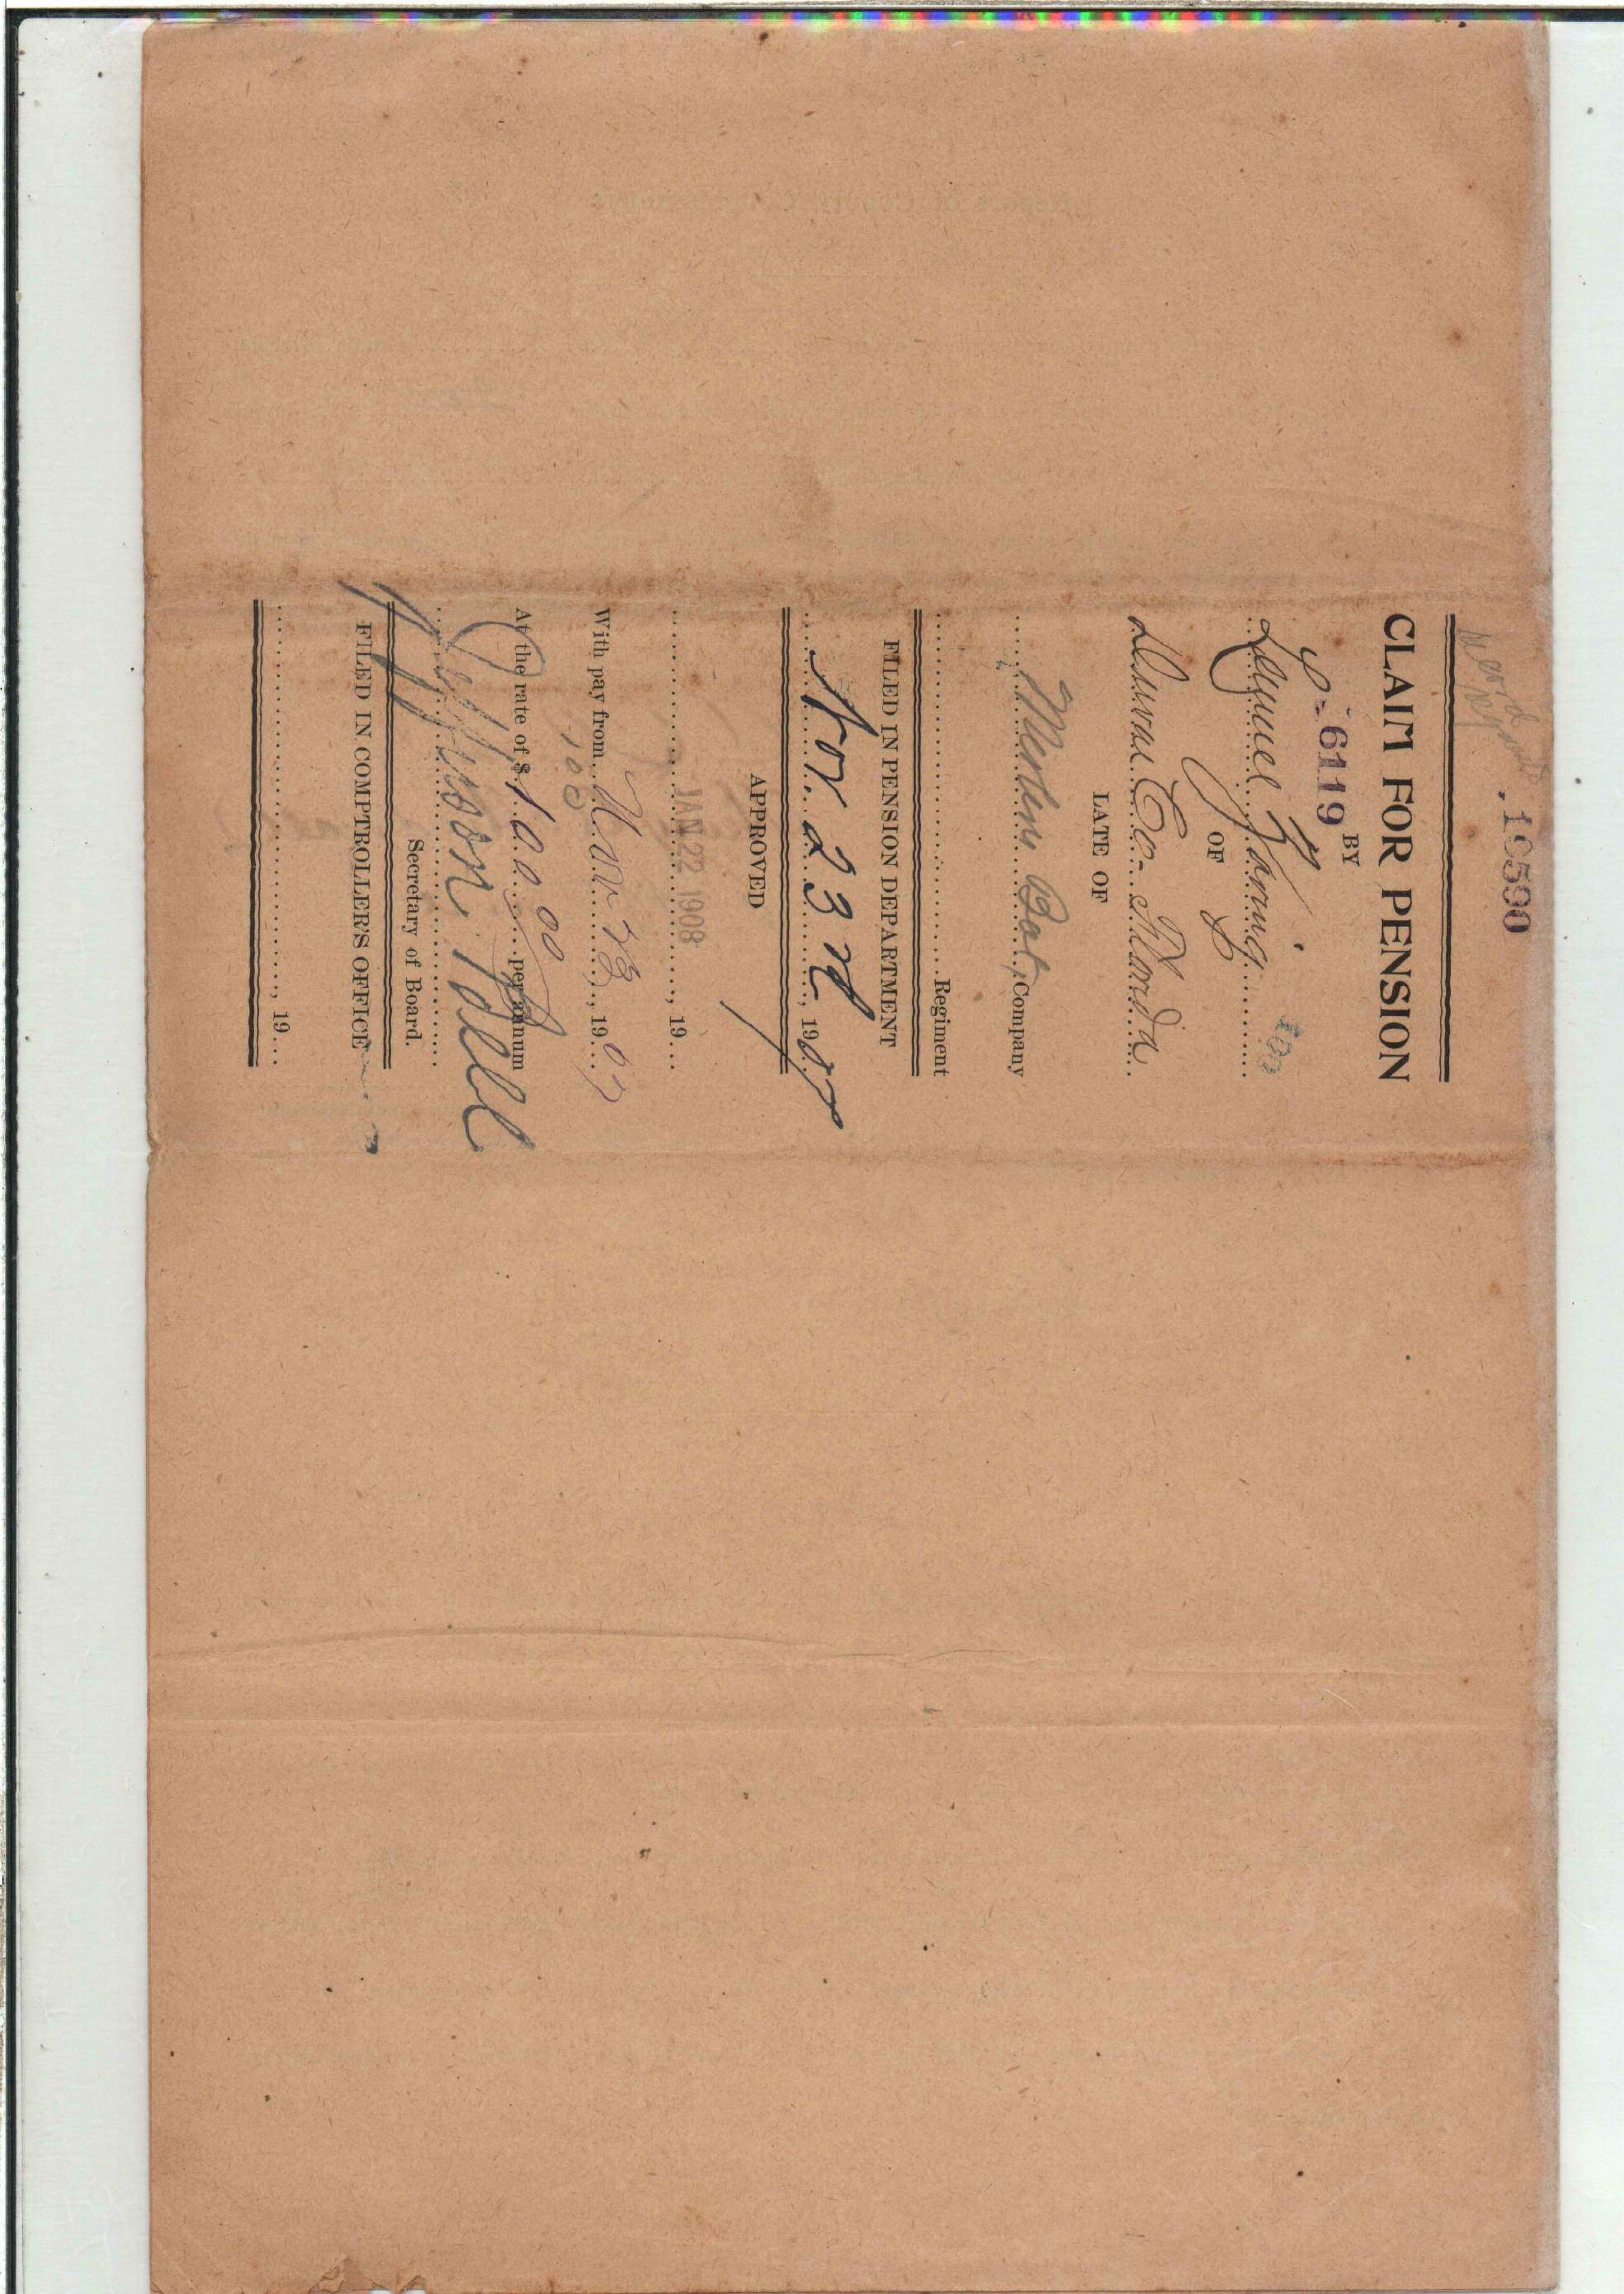 10590
CLAIM FOR PENSION
BY
6119
OF
Duval Co. Florida
LATE OF
Company
Regiment
FILED IN PENSION DEPARTMENT
Nov 23rd, 1907
APPROVED
JAN 22 1908, 19
With pay from Nov 23, 1907
100
At the rate of $ 100 00 per annum
Jefferson Bell
Secretary of Board.
FILED IN COMPTROLLER'S OFFICE
, 19